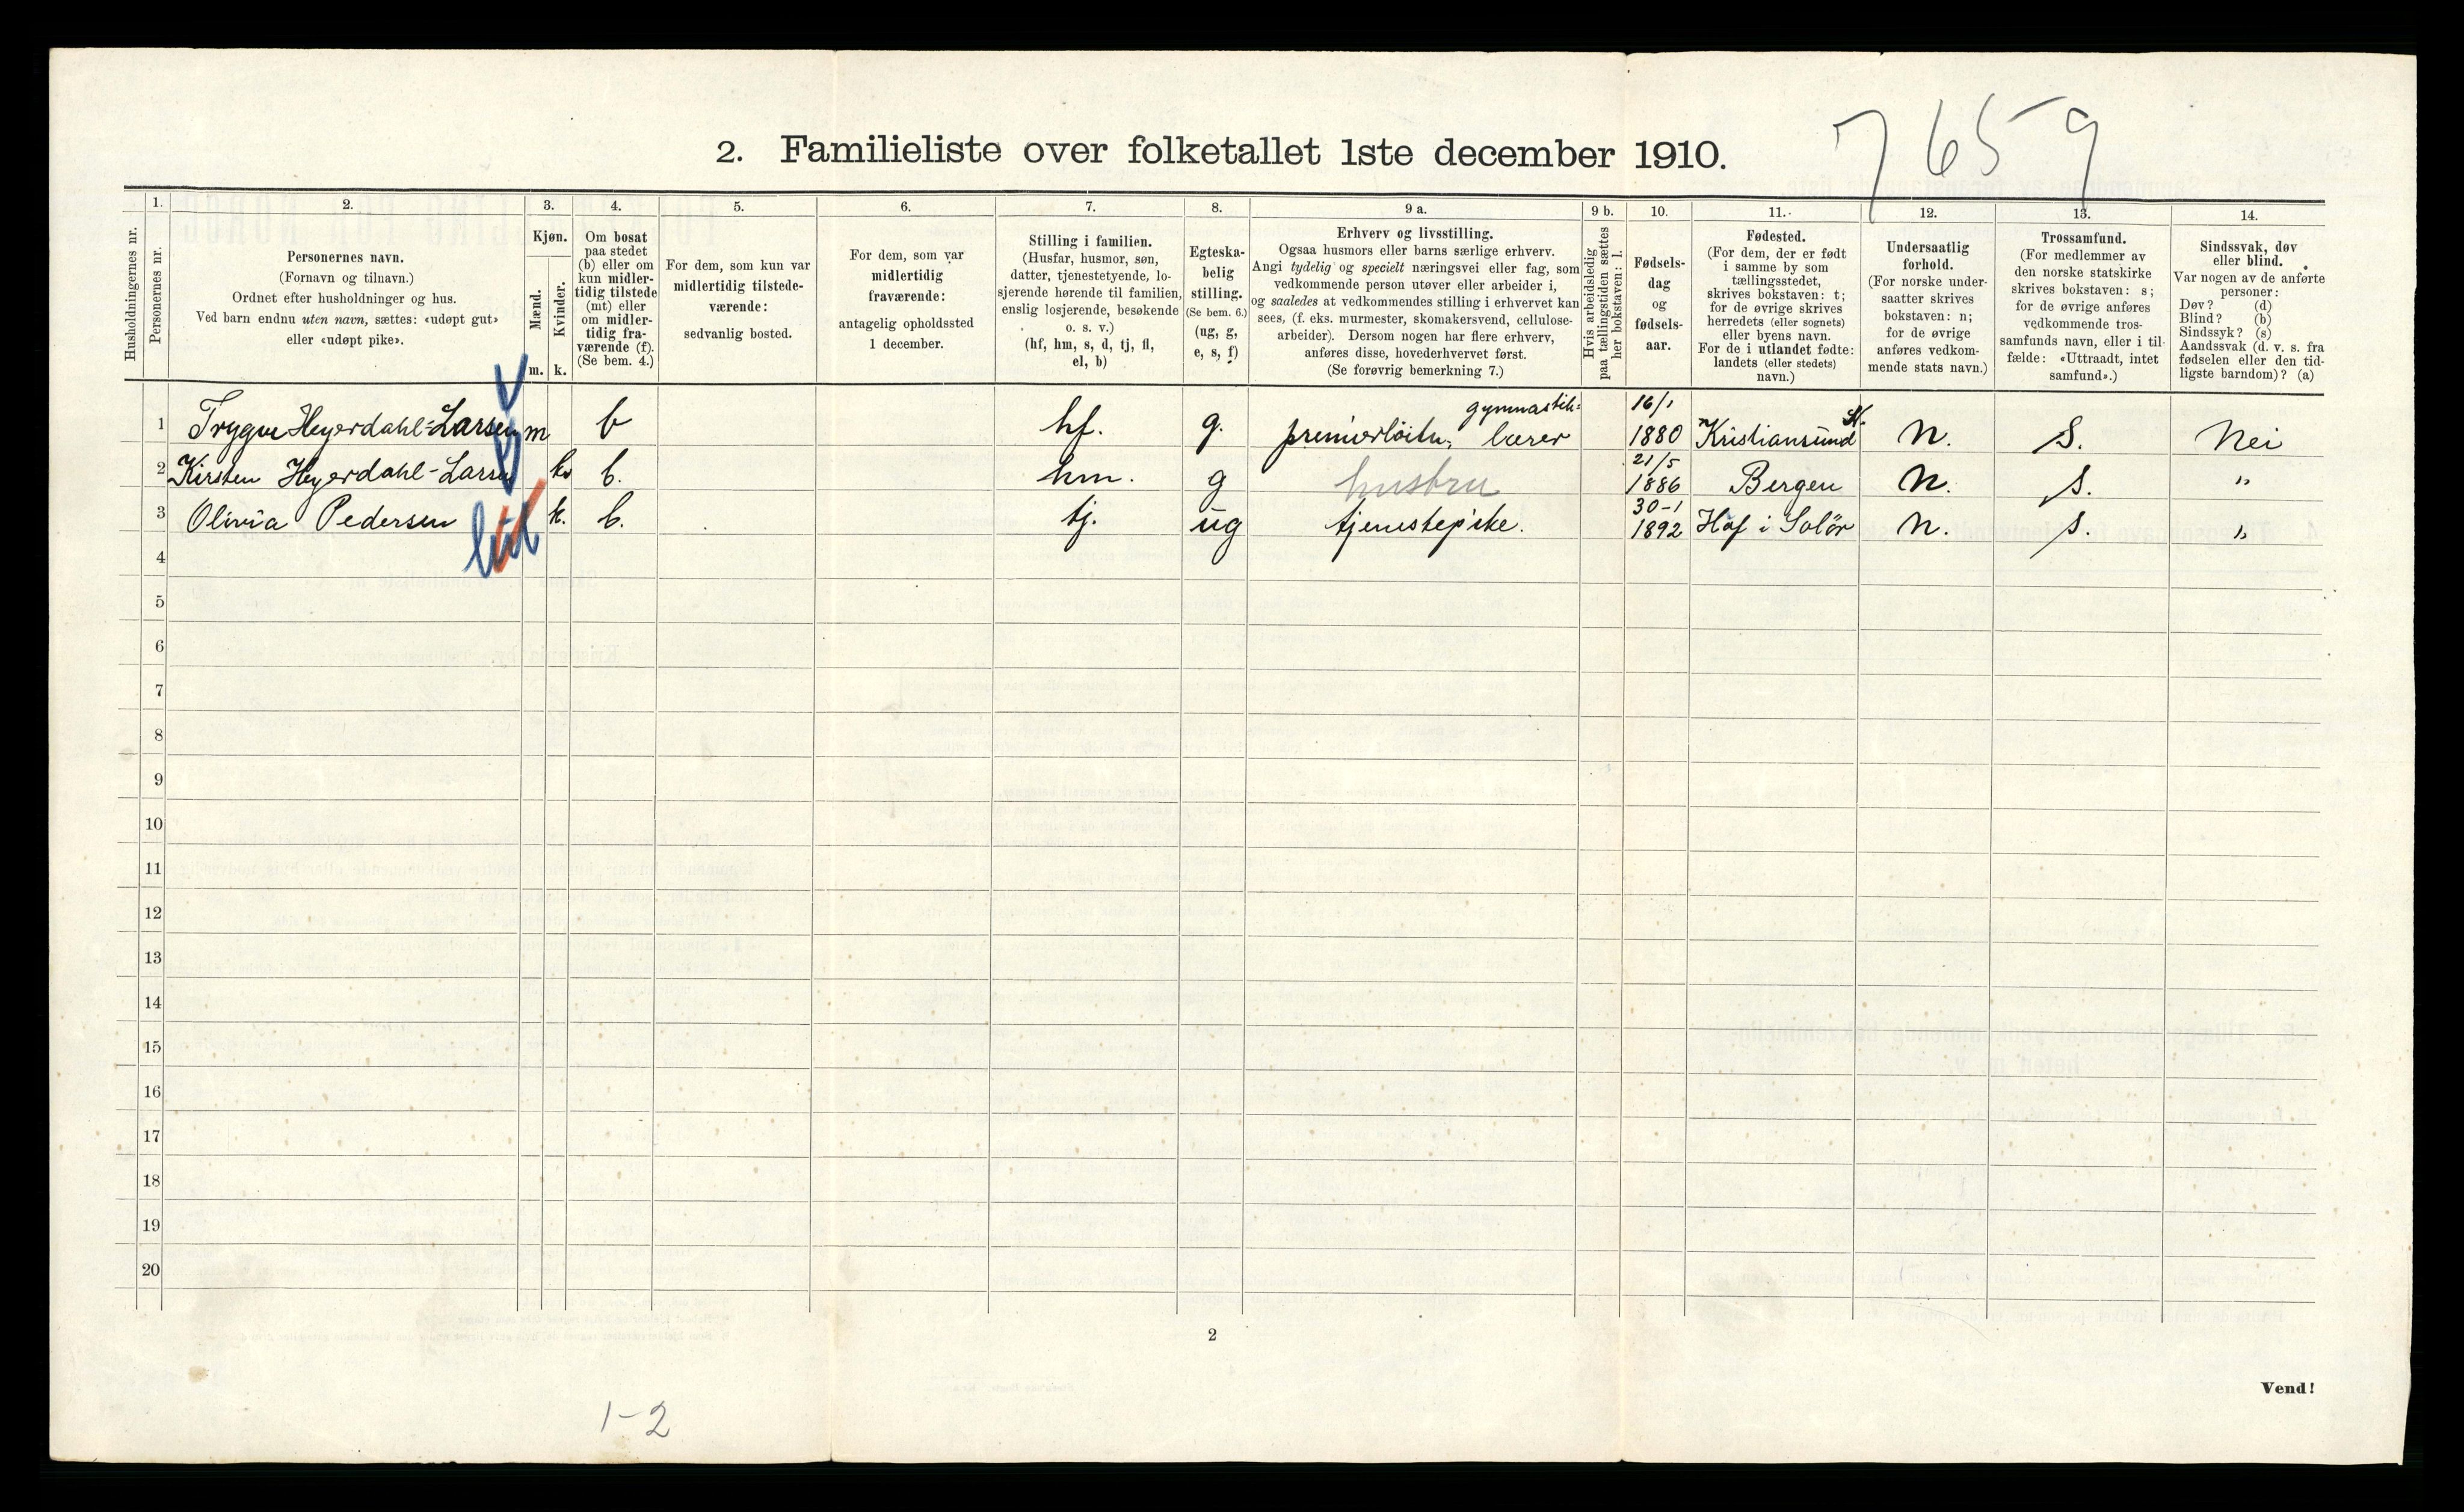 7659
2. Familieliste over folketallet 1ste december 1910.
1. 2. 3. 4. 5. 6. 7. 8. 9 a. 9 b. 10. 11. 12. 13. 14.
Husholdningernes nr.
Personernes nr.
Personernes navn.
(Fornavn og tilnavn.)
Ordnet efter husholdninger og hus.
Ved barn endnu uten navn, sættes: «udøpt gut»
eller «udøpt pike».
Kjøn.
Mænd.
Kvinder.
m. k.
Om bosat
paa stedet
(b) eller om
kun midler-
tidig tilstede
(mt) eller
om midler-
tidig fra-
værende (f).
(Se bem. 4.)
For dem, som kun var
midlertidig tilstede-
værende:
sedvanlig bosted.
For dem, som var
midlertidig
fraværende:
antagelig opholdssted
1 december.
Stilling i familien.
(Husfar, husmor, søn,
datter, tjenestetyende, lo-
sjerende hørende til familien,
enslig losjerende, besøkende
o. s. v.)
(hf, hm, s, d, tj, fl,
el, b)
Egteska-
belig
stilling.
(Se bem. 6.)
(ug, g,
e, s, f)
Erhverv og livsstilling.
Ogsaa husmors eller barns særlige erhverv.
Angi tydelig og specielt næringsvei eller fag, som
vedkommende person utøver eller arbeider i,
og saaledes at vedkommendes stilling i erhvervet kan
sees, (f. eks. murmester, skomakersvend, cellulose-
arbeider). Dersom nogen har flere erhverv,
anføres disse, hovederhvervet først.
(Se forøvrig bemerkning 7.)
Hvis arbeidsledig
paa tællingstiden sættes
her bokstaven: l.
Fødsels-
dag
og
fødsels-
aar.
Fødested.
(For dem, der er født
i samme by som
tællingsstedet,
skrives bokstaven: t;
for de øvrige skrives
herredets (eller sognets)
eller byens navn.
For de i utlandet fødte:
landets (eller stedets)
navn.)
Undersaatlig
forhold.
(For norske under-
saatter skrives
bokstaven: n;
for de øvrige
anføres vedkom-
mende stats navn.)
Trossamfund.
(For medlemmer av
den norske statskirke
skrives bokstaven: s;
for de øvrige anføres
vedkommende tros-
samfunds navn, eller i til-
fælde: «Uttraadt, intet
samfund».)
Sindssvak, døv
eller blind.
Var nogen av de anførte
personer:
Døv? (d)
Blind? (b)
Sindssyk? (s)
Aandssvak (d. v. s. fra
fødselen eller den tid-
ligste barndom)? (a)
1 Trygve Heyerdahl-Larsen m b hf. g. premierløitn, gymnastik=lærer 16/1 1880 Kristiansund N. n. s. Nei
2 Kirsten Heyerdahl-Larsen k b. hm. g husbru 21/5 1886 Bergen n. s. "
3 Olivia Pedersen k. b. tj. ug tjenestepike. 30-1 1892 Hof i Solör n. s. "
4
5
6
7
8
9
10
11
12
13
14
15
16
17
18
19
20
2
Vend!
1-2